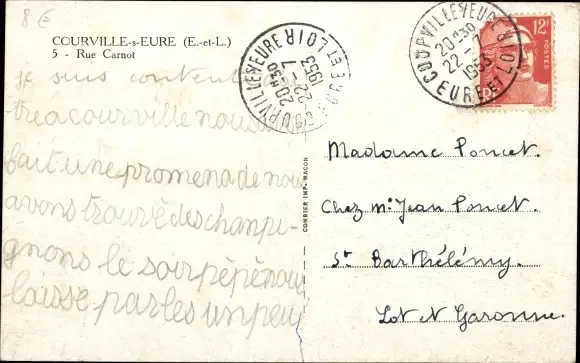 8 €
COURVILLE-s-EURE (E.-et-L.)
5 - Rue Carnot
je suis content
trea courville nous
fait une promenade nou
avons trouvé des champi-
gnons le soir pépé nous
laisse parles un peu
COMBIER IMP. MACON
COURVILLE S/EURE
20H30
22-7
1953
EURE ET LOIR
COURVILLE S/EURE
20H30
22-7
1953
EURE ET LOIR
12F
POSTES
Madame Poncet.
Chez Mr Jean Poncet.
St Barthélémy.
Lot et Garonne.